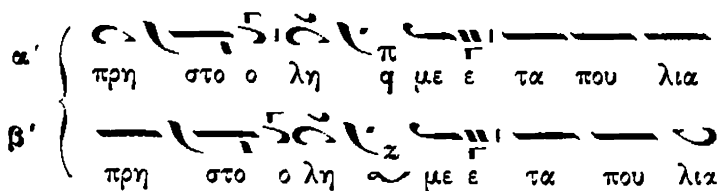 α′ πρη στο ο λη π q με ε τα που λια
β′ πρη στο ο λη z με ε τα που λια